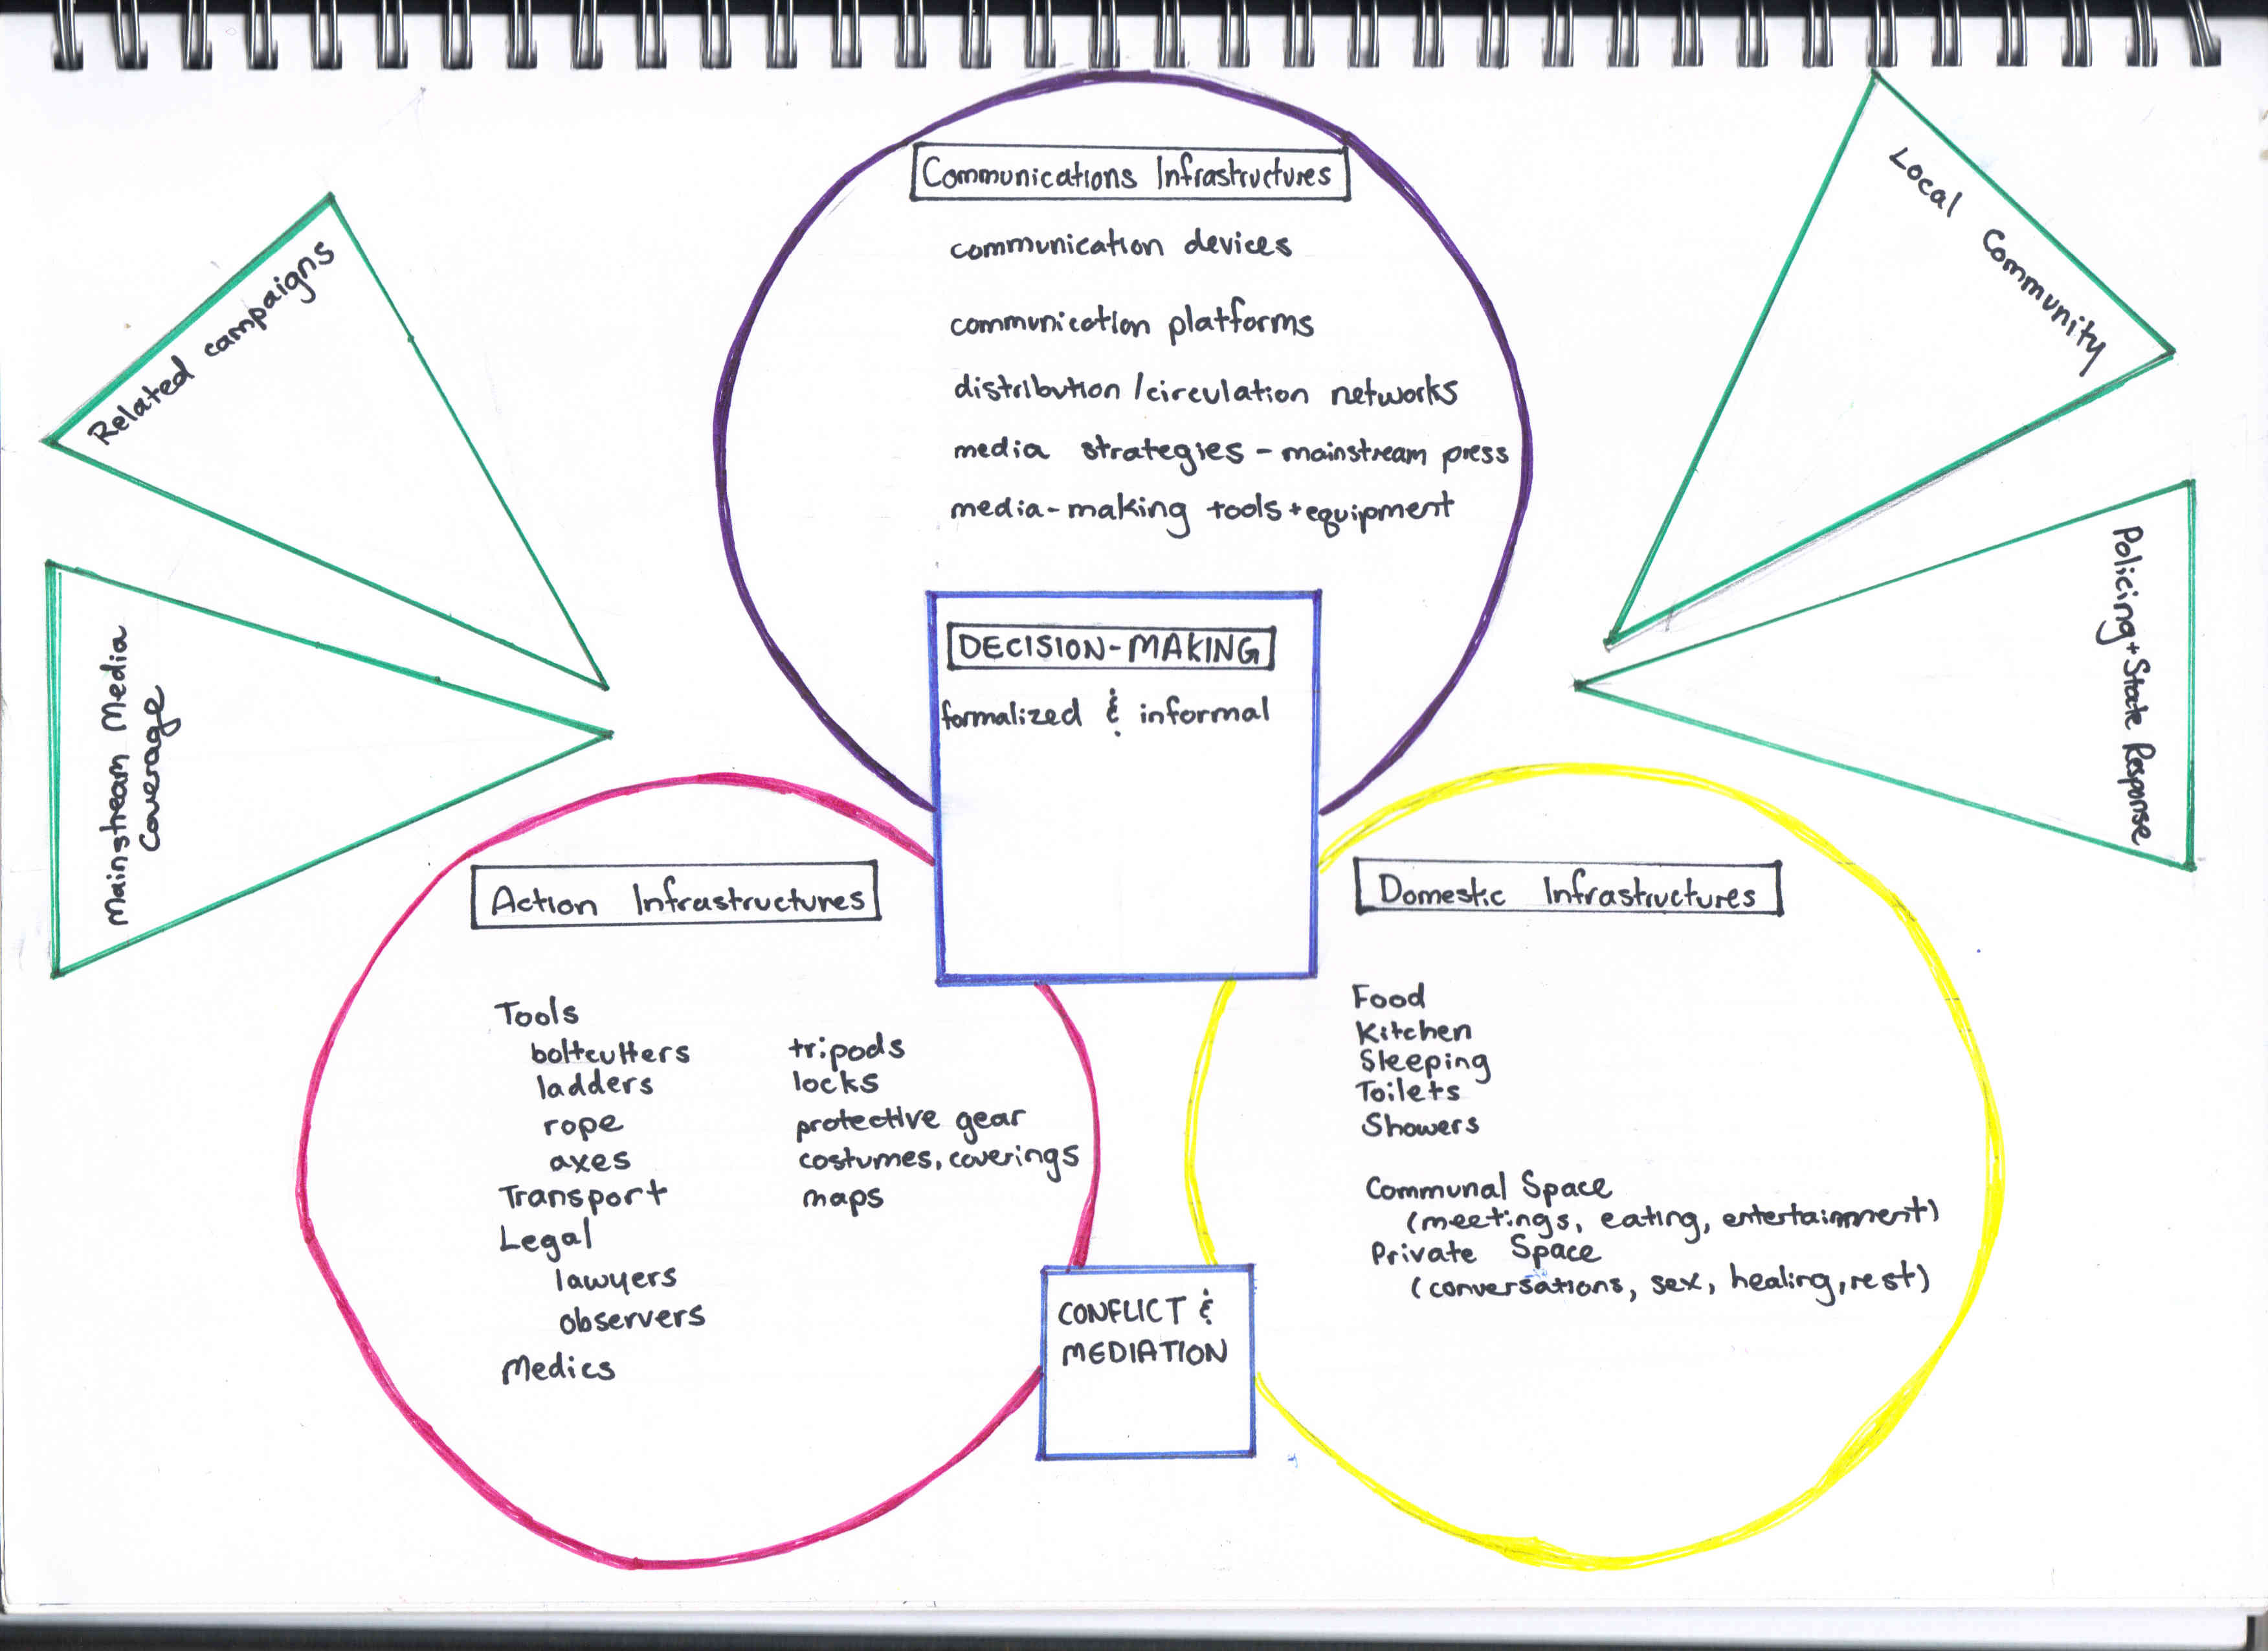 Communications Infrastructures
communication devices
communication platforms
distribution/circulation networks
media strategies - mainstream press
media-making tools + equipment
Related campaigns
Mainstream Media
Coverage
Local Community
Policing + State Response
DECISION-MAKING
formalized & informal
Action Infrastructures
Tools
boltcutters
ladders
rope
axes
Transport
Legal
lawyers
observers
Medics
tripods
locks
protective gear
costumes, coverings
maps
Domestic Infrastructures
Food
Kitchen
Sleeping
Toilets
Showers
Communal Space
(meetings, eating, entertainment)
Private Space
(conversations, sex, healing, rest)
CONFLICT &
MEDIATION